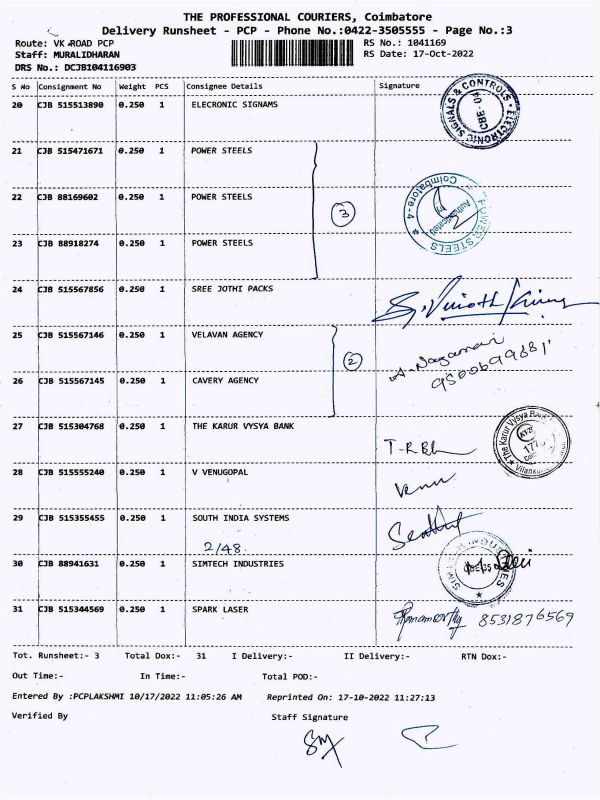 THE PROFESSIONAL COURIERS, Coimbatore
Delivery Runsheet - PCP - Phone No.:0422-3505555 - Page No.:3
Route: VK ROAD PCP RS No.: 1041169
Staff: MURALIDHARAN RS Date: 17-Oct-2022
DRS No.: DCJB104116903
S No Consignment No Weight PCS Consignee Details Signature
20 CJB 515513890 0.250 1 ELECRONIC SIGNAMS
SIGNALS & CONTROLS ELECTRONIC CBE-04
21 CJB 515471671 0.250 1 POWER STEELS
22 CJB 88169602 0.250 1 POWER STEELS 3
POWER STEELS Coimbatore-4
23 CJB 88918274 0.250 1 POWER STEELS
24 CJB 515567856 0.250 1 SREE JOTHI PACKS
25 CJB 515567146 0.250 1 VELAVAN AGENCY
2
26 CJB 515567145 0.250 1 CAVERY AGENCY
27 CJB 515304768 0.250 1 THE KARUR VYSYA BANK
The Karur Vysya
28 CJB 515555240 0.250 1 V VENUGOPAL Venu
29 CJB 515355455 0.250 1 SOUTH INDIA SYSTEMS
2/48
30 CJB 88941631 0.250 1 SIMTECH INDUSTRIES
31 CJB 515344569 0.250 1 SPARK LASER 8531876569
Tot. Runsheet:- 3 Total Dox:- 31 I Delivery:- II Delivery:- RTN Dox:-
Out Time:- In Time:- Total POD:-
Entered By :PCPLAKSHMI 10/17/2022 11:05:26 AM Reprinted On: 17-10-2022 11:27:13
Verified By Staff Signature